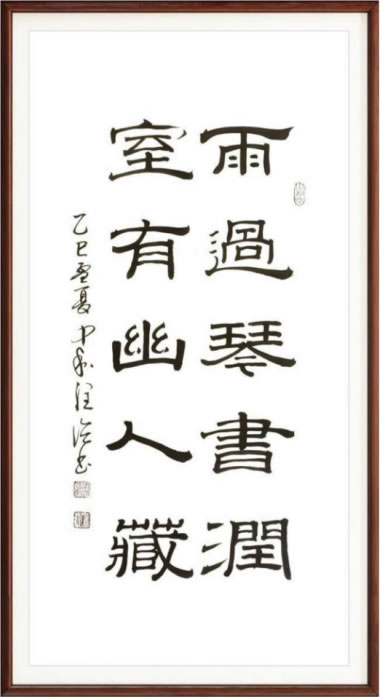 雨過琴書潤
室有幽人藏
乙巳孟夏